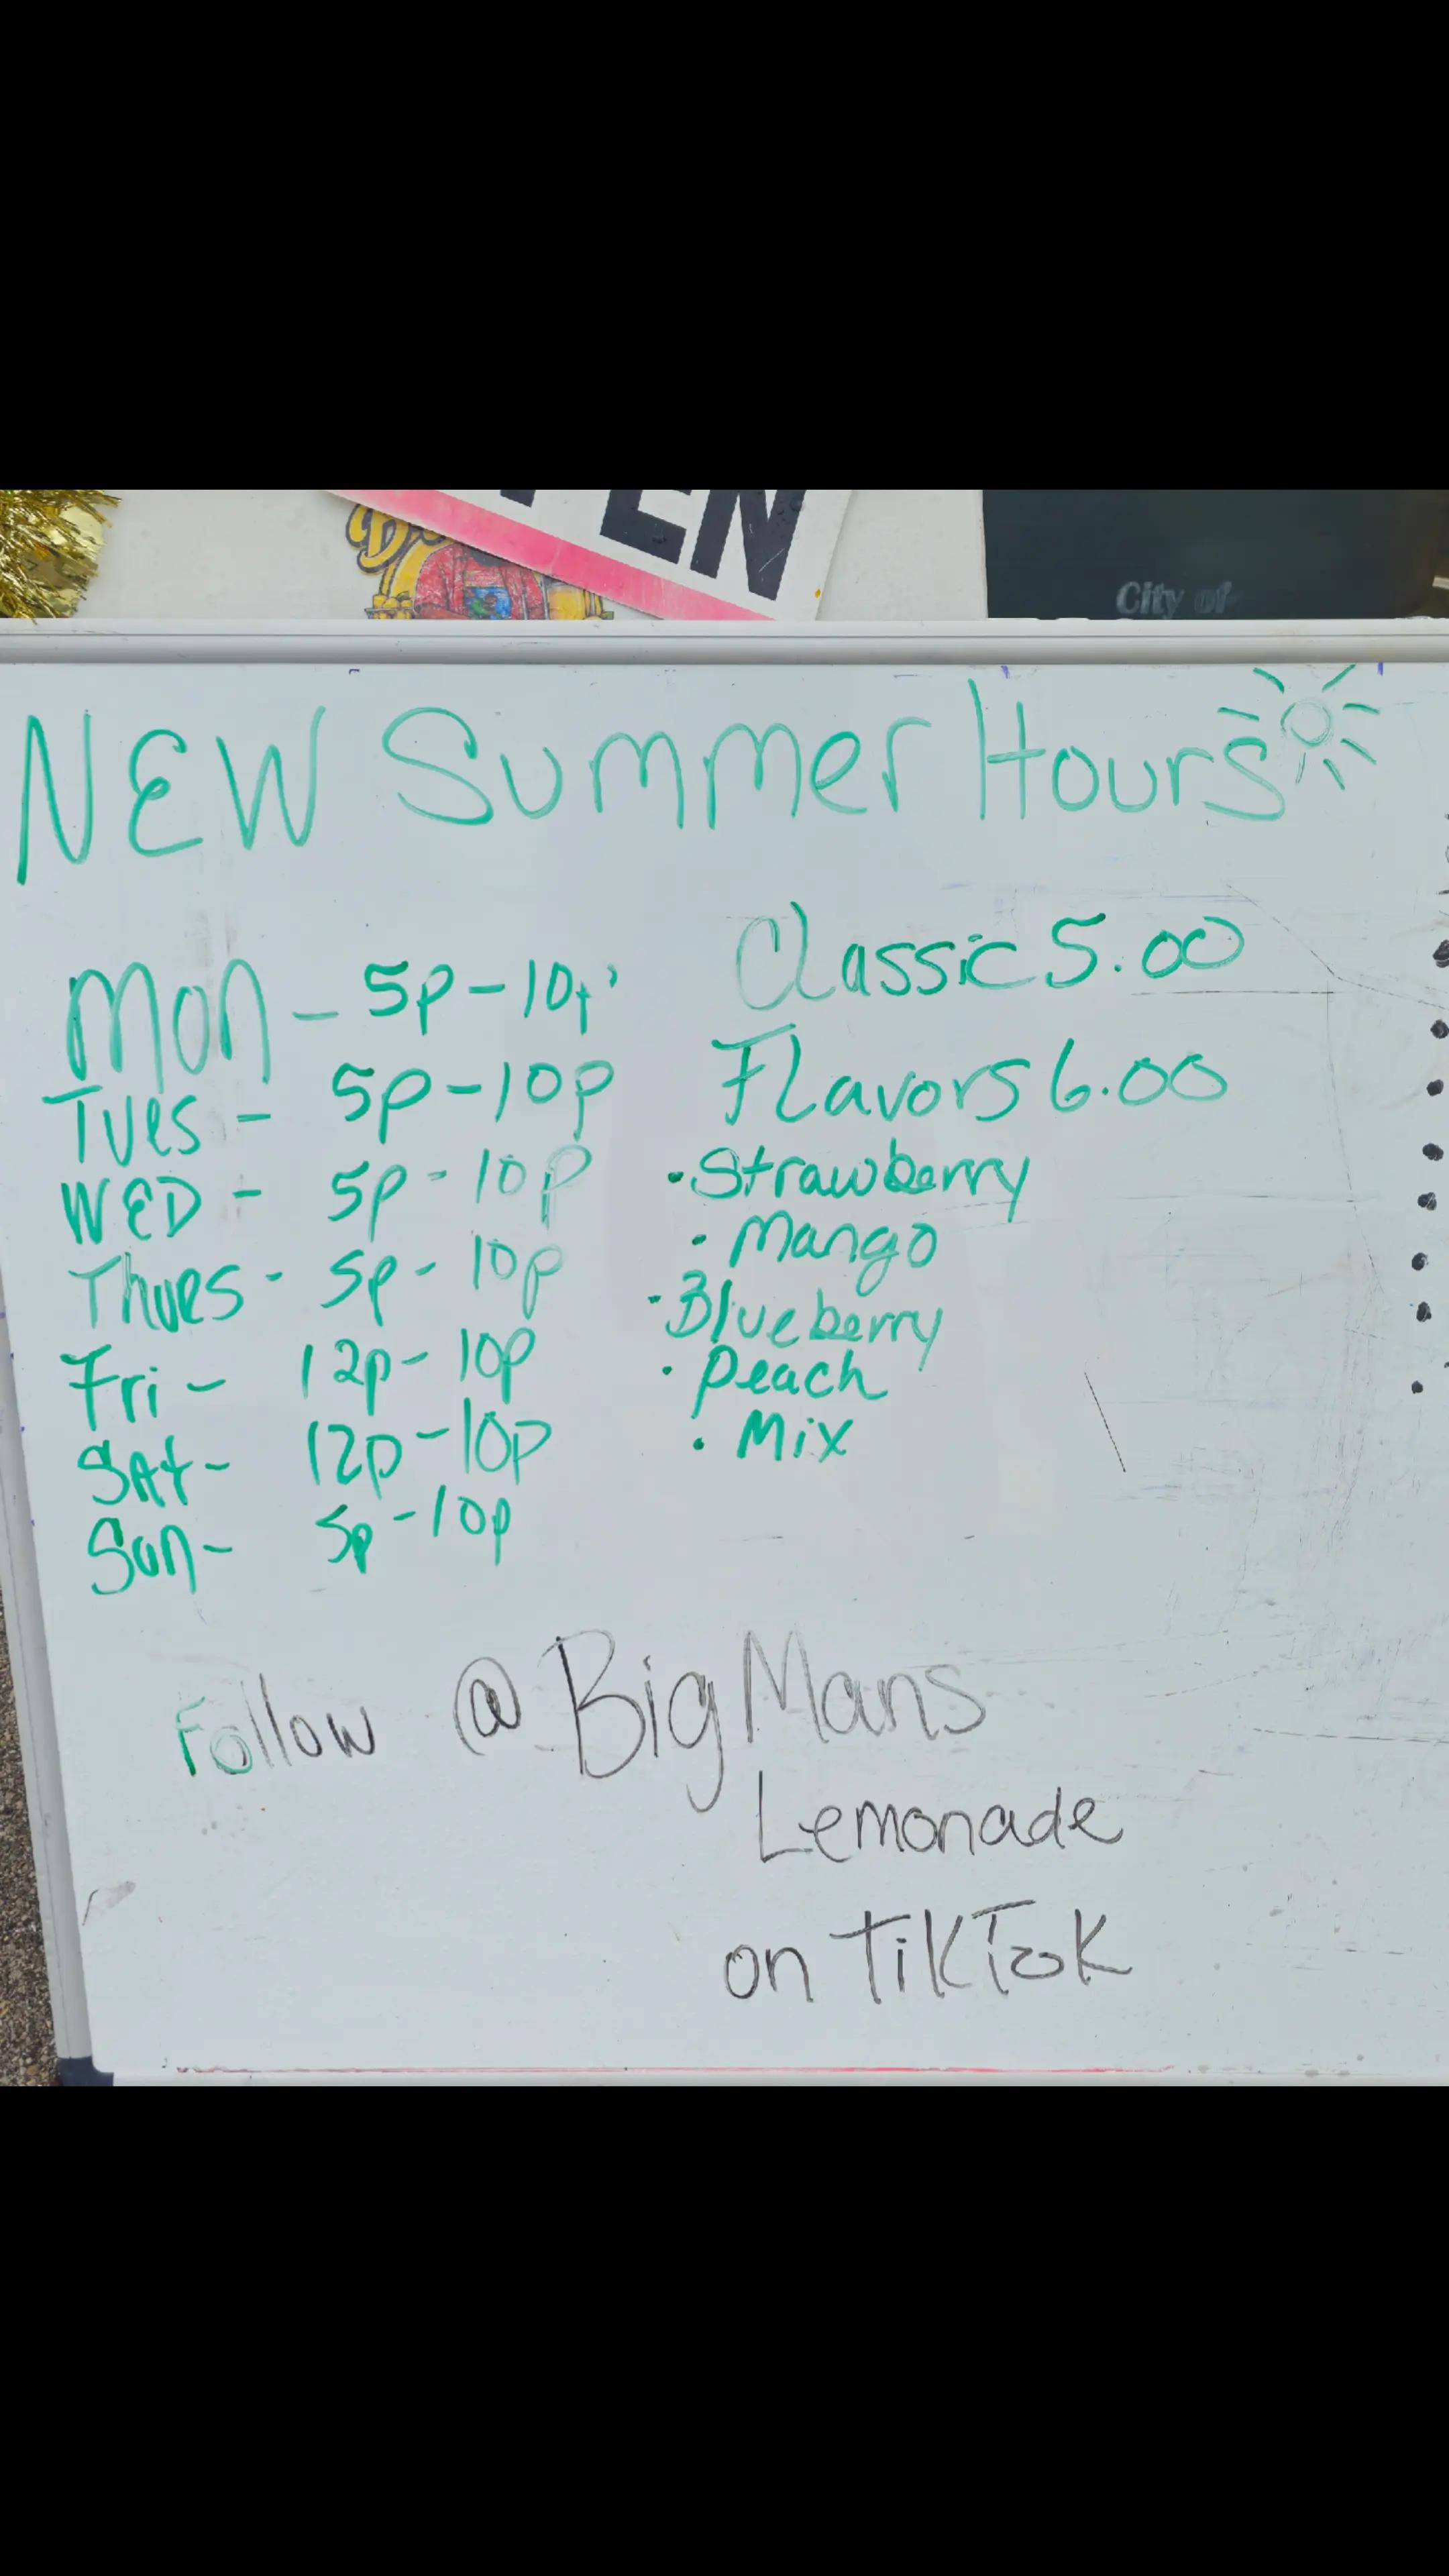 PEN
City of
NEW Summer Hours
Mon - 5p - 10p
Tues - 5p - 10p
WED - 5p - 10p
Thurs - 5p - 10p
Fri - 12p - 10p
SAt - 12p - 10p
Sun - 5p - 10p
Classic 5.00
Flavors 6.00
• Strawberry
• Mango
• Blueberry
• Peach
• Mix
Follow @BigMans
Lemonade
on TikTok